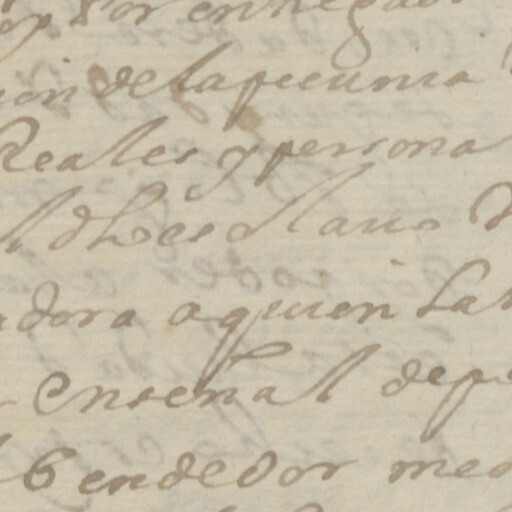 por entregad
ion de la pecunia
Reales y persona
l dho esclavo
adora a quien la
en señal de po
l bendedor me